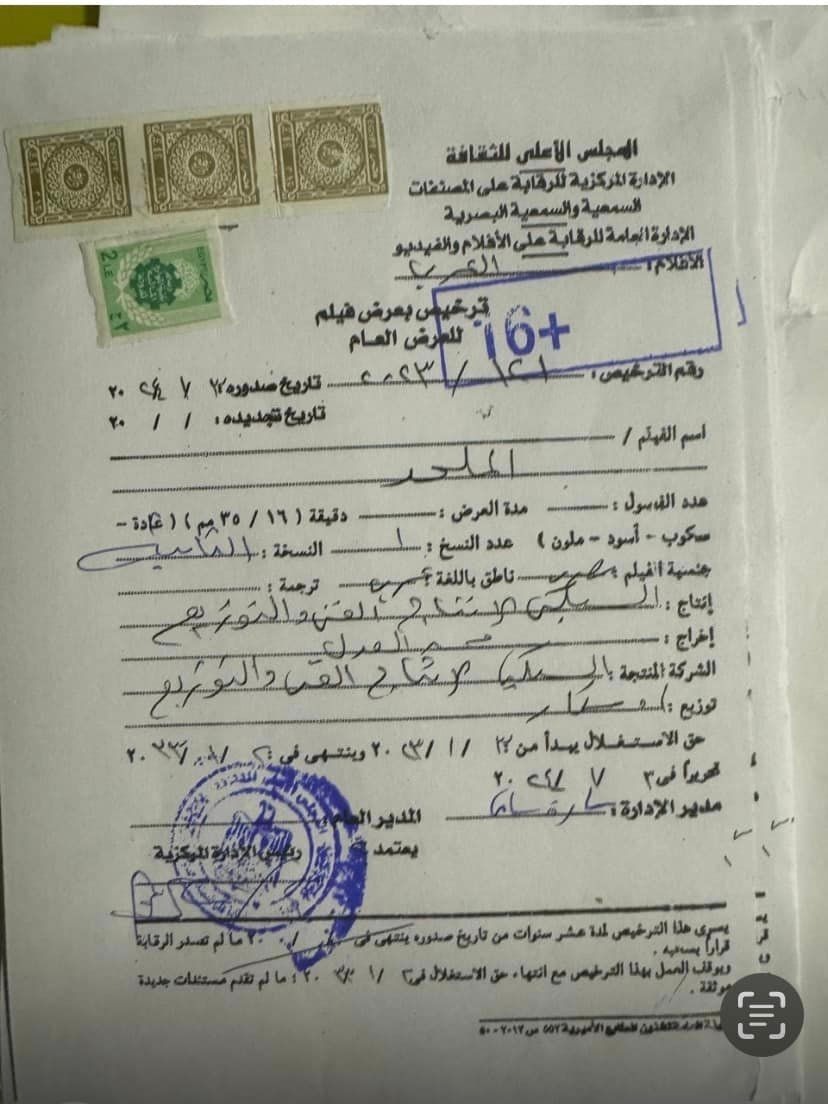 المجلس الأعلى للثقافة
الإدارة المركزية للرقابة على المصنفات
السمعية والسمعية البصرية
الإدارة العامة للرقابة على الأفلام والفيديو
الأفلام : العرب
2 L.E
16+
ترخيص بعرض فيلم
للعرض العام
رقم الترخيص : ١٢١ / ٢٠٢٣ تاريخ صدوره ٧ ٢٠٢٤
تاريخ تجديده : / / ٢٠
اسم الفيلم /
الملحد
عدد الفصول : مدة العرض : دقيقة ( ١٦ / ٣٥ مم ) ( عادة -
سكوب - أسود - ملون ) عدد النسخ : ١ النسخة : الثانية
جنسية الفيلم : مصرى ناطق باللغة : عربى ترجمة :
إنتاج : السبكى للإنتاج الفنى والتوزيع
إخراج : محمد العدل
الشركة المنتجة : السبكى للإنتاج الفنى والتوزيع
توزيع :
حق الاستغلال يبدأ من / ١ / ٢٠٢٣ وينتهى فى :
تحريراً فى ٣ ٧ / ٢٠٢٤
مدير الإدارة : سارة المدير العام :
يعتمد
رئيس الإدارة المركزية
يسرى هذا الترخيص لمدة عشر سنوات من تاريخ صدوره ينتهى فى ٢٠ ما لم تصدر الرقابة
قراراً بسحبه .
ويوقف العمل بهذا الترخيص مع انتهاء حق الاستغلال فى ما لم تقدم مستندات جديدة
موثقة .
المطابع الأميرية ٥٥٢ س ٢٠١٢ - ٥٠